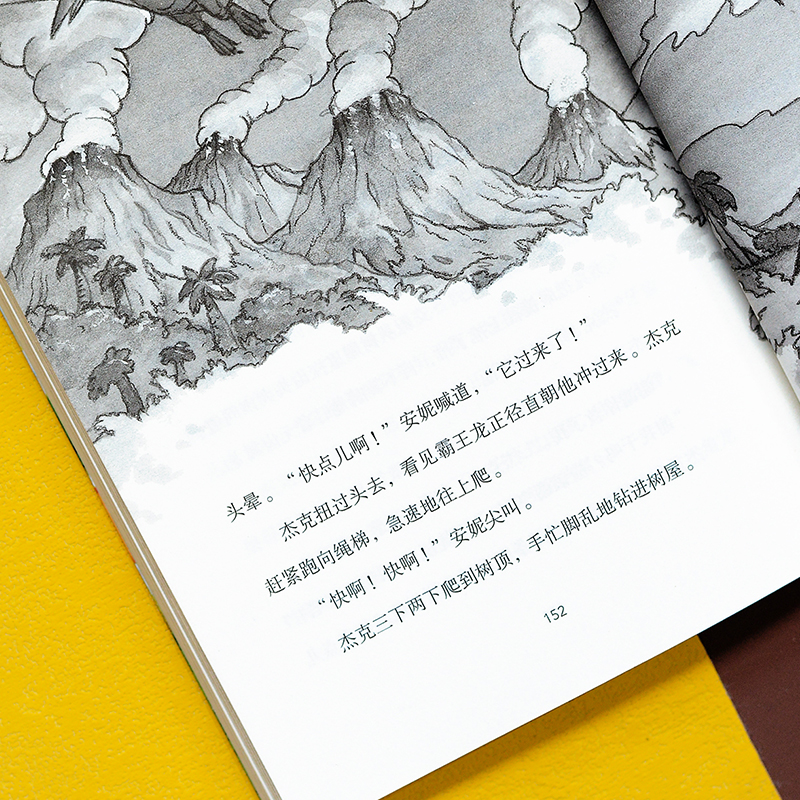 头晕。“快点儿啊！”安妮喊道，“它过来了！”
杰克扭过头去，看见霸王龙正径直朝他冲过来。杰克
赶紧跑向绳梯，急速地往上爬。
“快啊！快啊！”安妮尖叫。
杰克三下两下爬到树顶，手忙脚乱地钻进树屋。
152